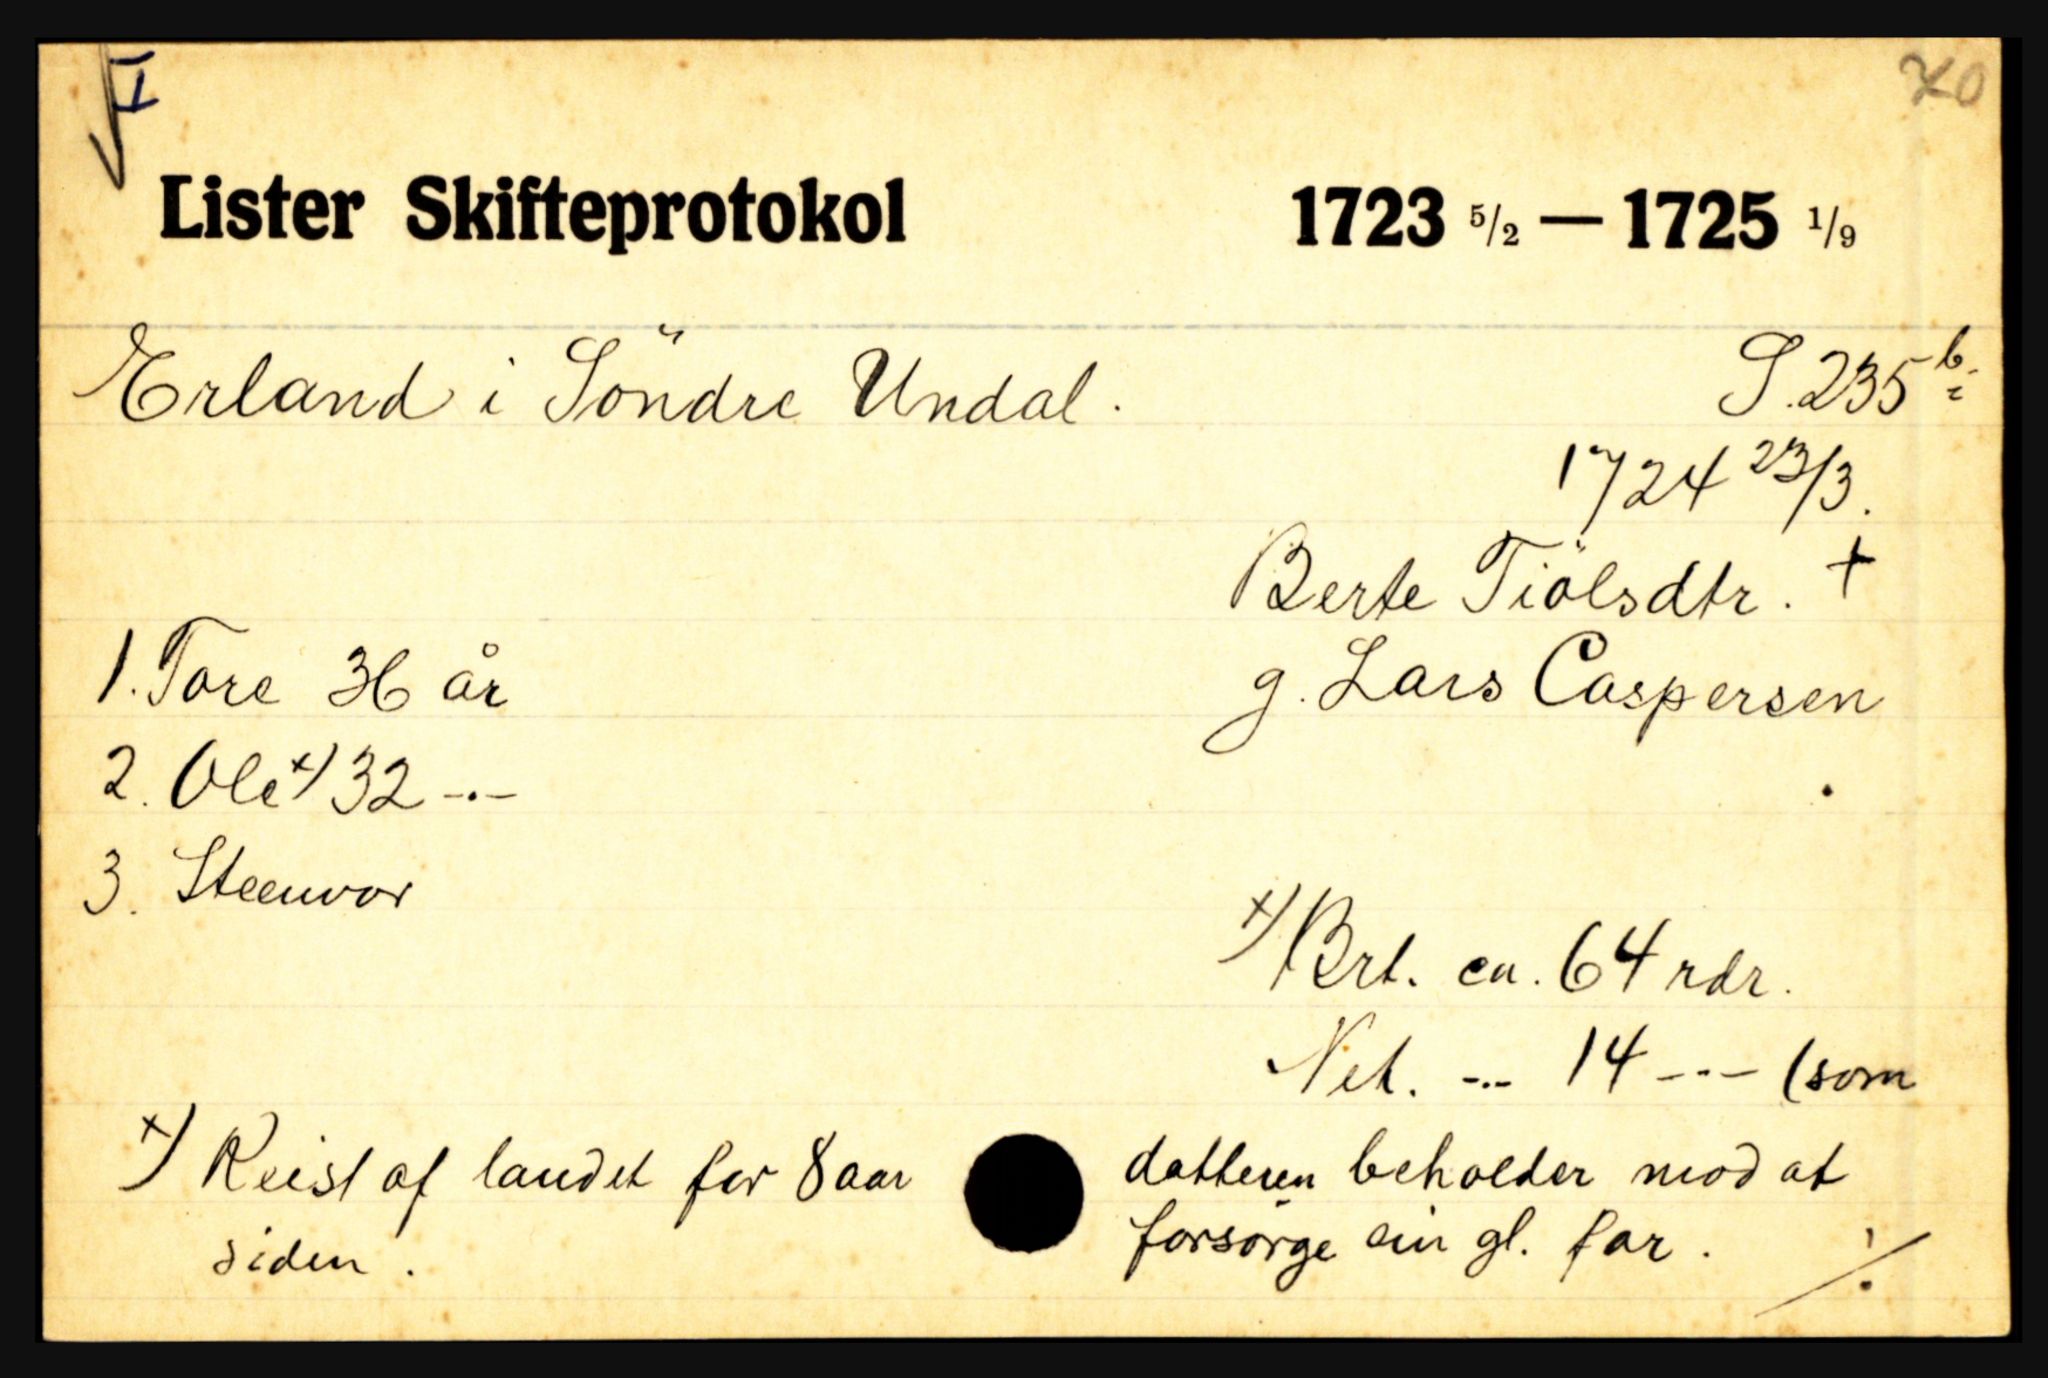 70
Lister Skifteprotokol 1723 5/2 — 1725 1/9
Erland i Söndre Undal. S. 235 b.
1724 23/3.
Berte Tiölsdtr. +
1. Tore 36 år
g. Lars Caspersen
2. Ole x) 32 -.-
3. Steenvor
x) Brt. ca. 64 rdr.
Net. -.- 14 -.- (som
x) Reist af landet for 8 aar
siden.
datteren beholder mod at
forsörge sin gl. far.
./.